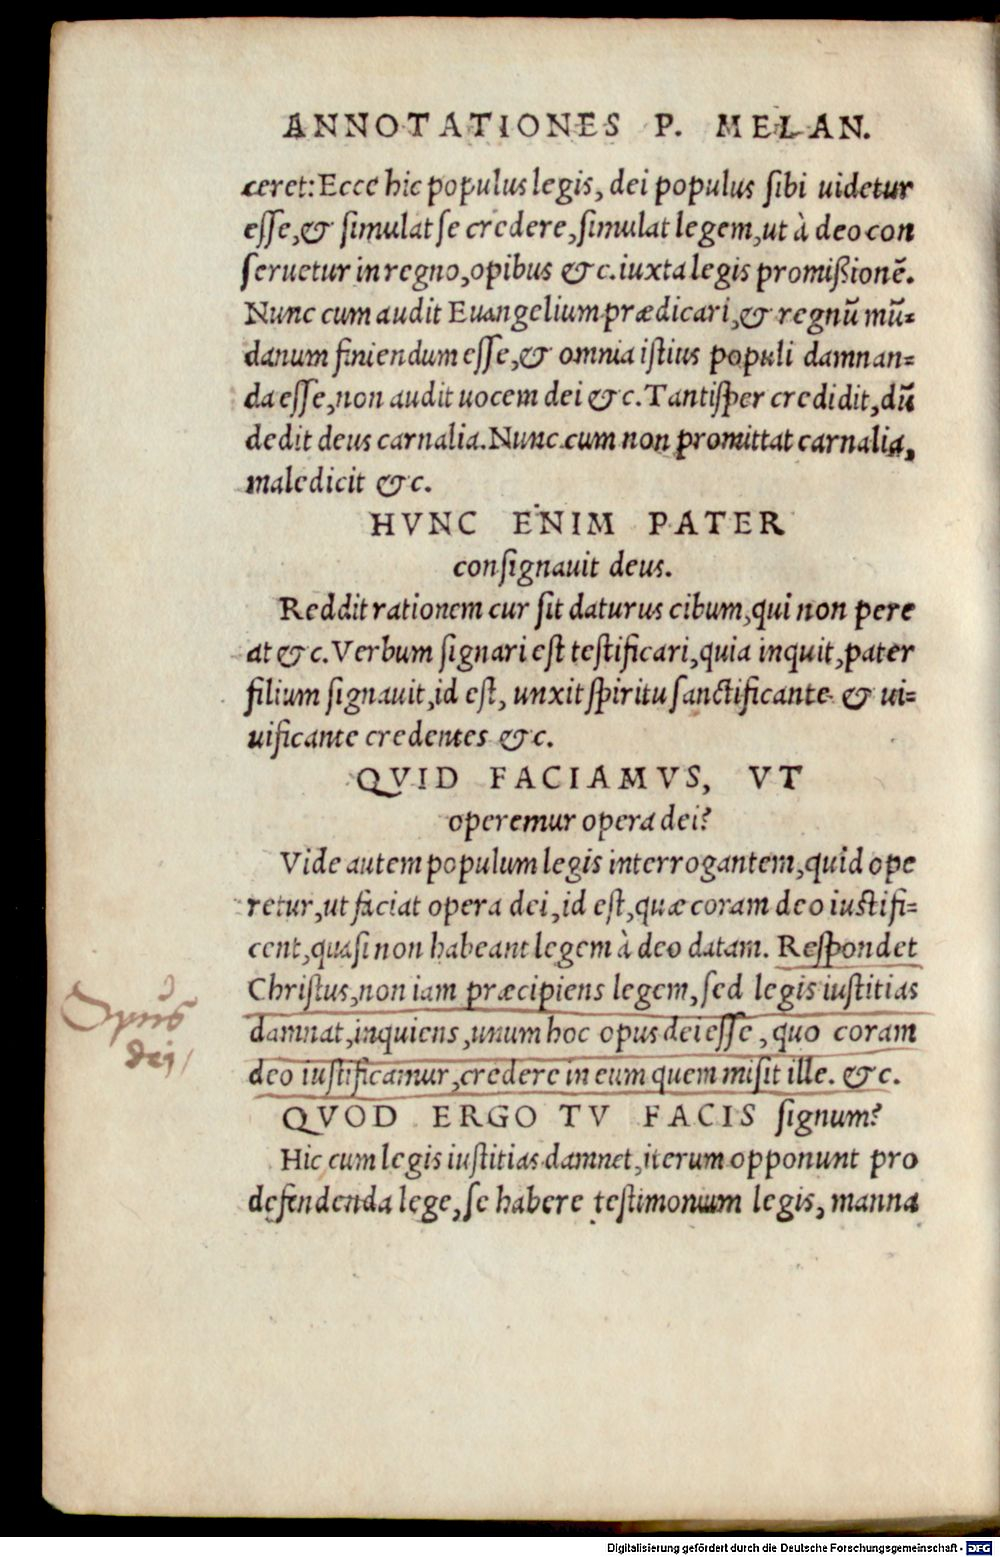 ANNOTATIONES P. MELAN.
ceret: Ecce hic populus legis, dei populus sibi uidetur
esse, & simulat se credere, simulat legem, ut à deo con
seruetur in regno, opibus &c. iuxta legis promißionē.
Nunc cum audit Euangelium prædicari, & regnū mū=
danum finiendum esse, & omnia istius populi damnan=
da esse, non audit uocem dei &c. Tantisper credidit, dū
dedit deus carnalia. Nunc cum non promittat carnalia,
maledicit &c.
HVNC ENIM PATER
consignauit deus.
Reddit rationem cur sit daturus cibum, qui non pere
at &c. Verbum signari est testificari, quia inquit, pater
filium signauit, id est, unxit spiritu sanctificante & ui=
uificante credentes &c.
QVID FACIAMVS, VT
operemur opera dei?
Vide autem populum legis interrogantem, quid ope
retur, ut faciat opera dei, id est, quæ coram deo iustifi=
cent, quasi non habeant legem à deo datam. Respondet
Christus, non iam præcipiens legem, sed legis iustitias
Opus
damnat, inquiens, unum hoc opus dei esse, quo coram
dei
deo iustificamur, credere in eum quem misit ille. &c.
QVOD ERGO TV FACIS signum?
Hic cum legis iustitias damnet, iterum opponunt pro
defendenda lege, se habere testimonium legis, manna
Digitalisierung gefördert durch die Deutsche Forschungsgemeinschaft - DFG